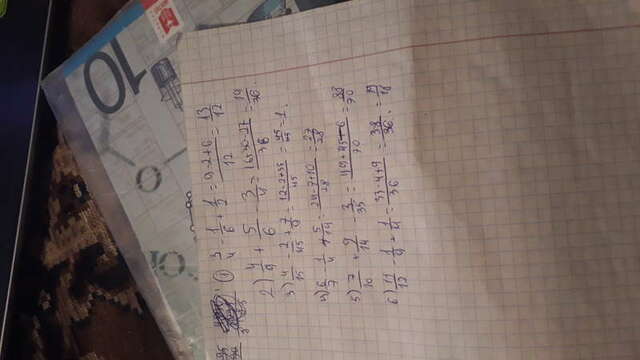 10
1) 3/4 - 1/6 + 1/2 = 9-2+6/12 = 13/12
2) 4/9 + 5/6 - 3/4 = 16+30-27/36 = 19/36.
3) 4/15 - 2/45 + 7/9 = 12-2+35/45 = 45/45 = 1.
4) 6/7 - 1/4 + 5/14 = 24-7+10/28 = 27/28
5) 7/10 + 9/14 - 3/35 = 49+45-6/70 = 88/70
6) 11/12 - 1/9 + 1/4 = 33-4+9/36 = 38/36 = 19/18